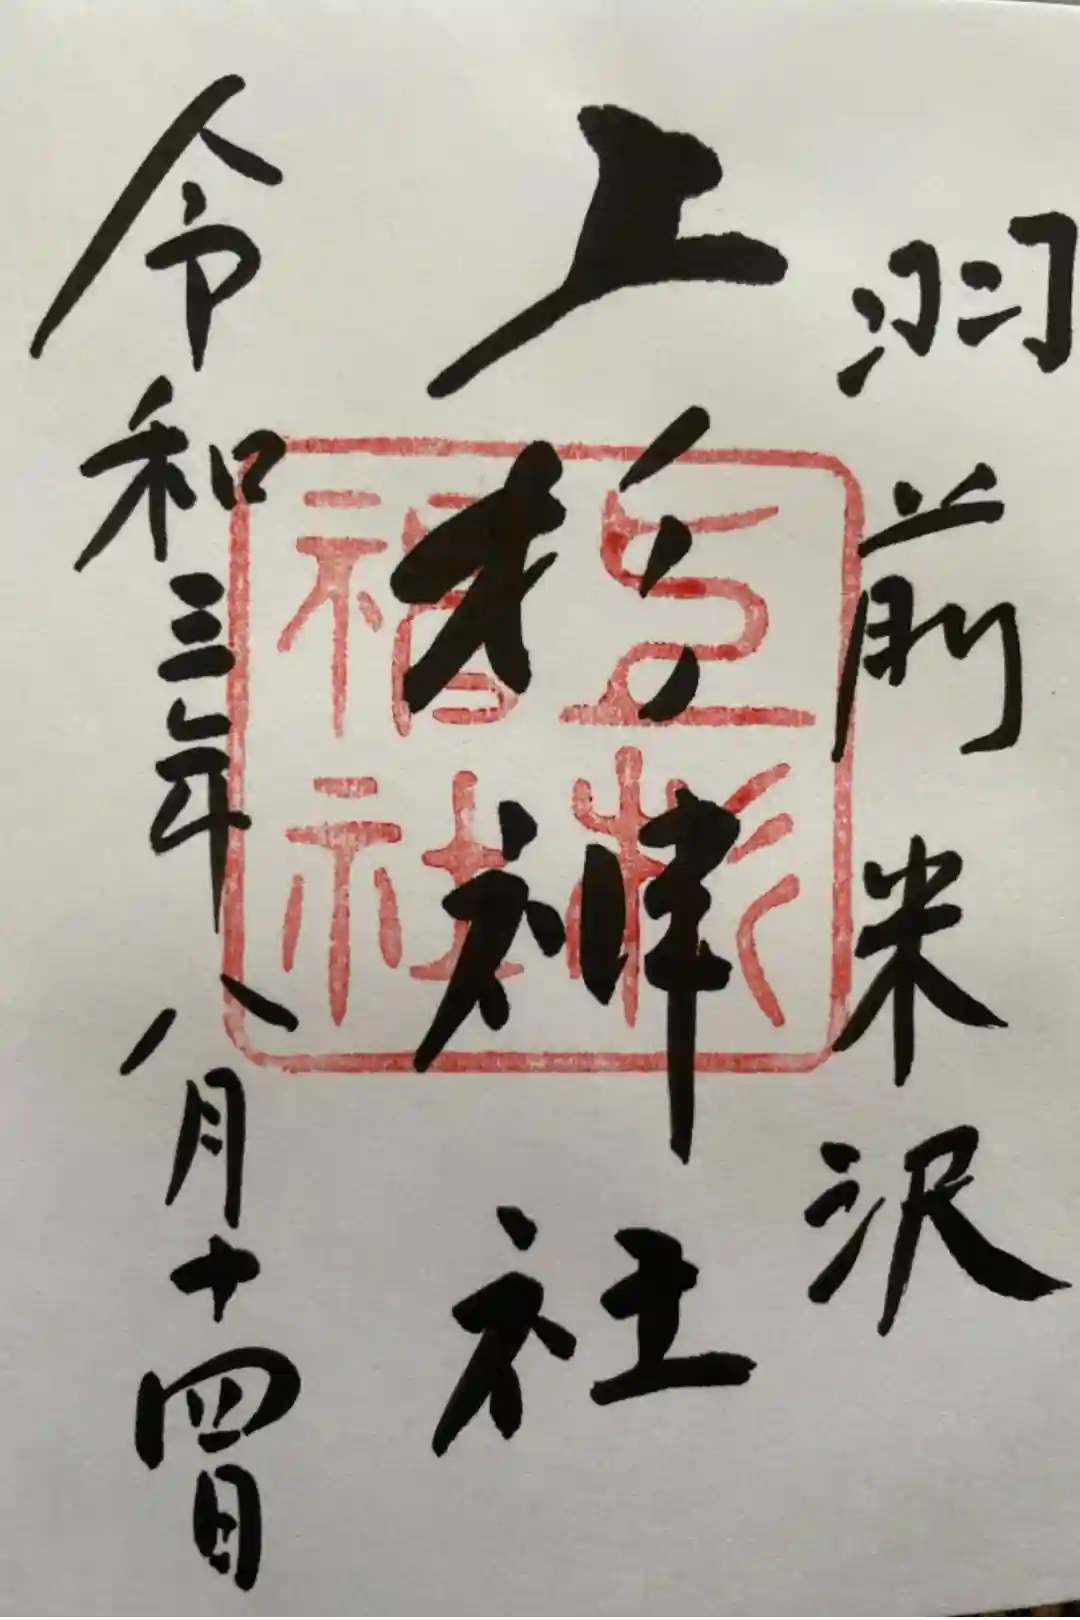 羽前米沢
上杉神社
上杉神社
令和三年八月十四日